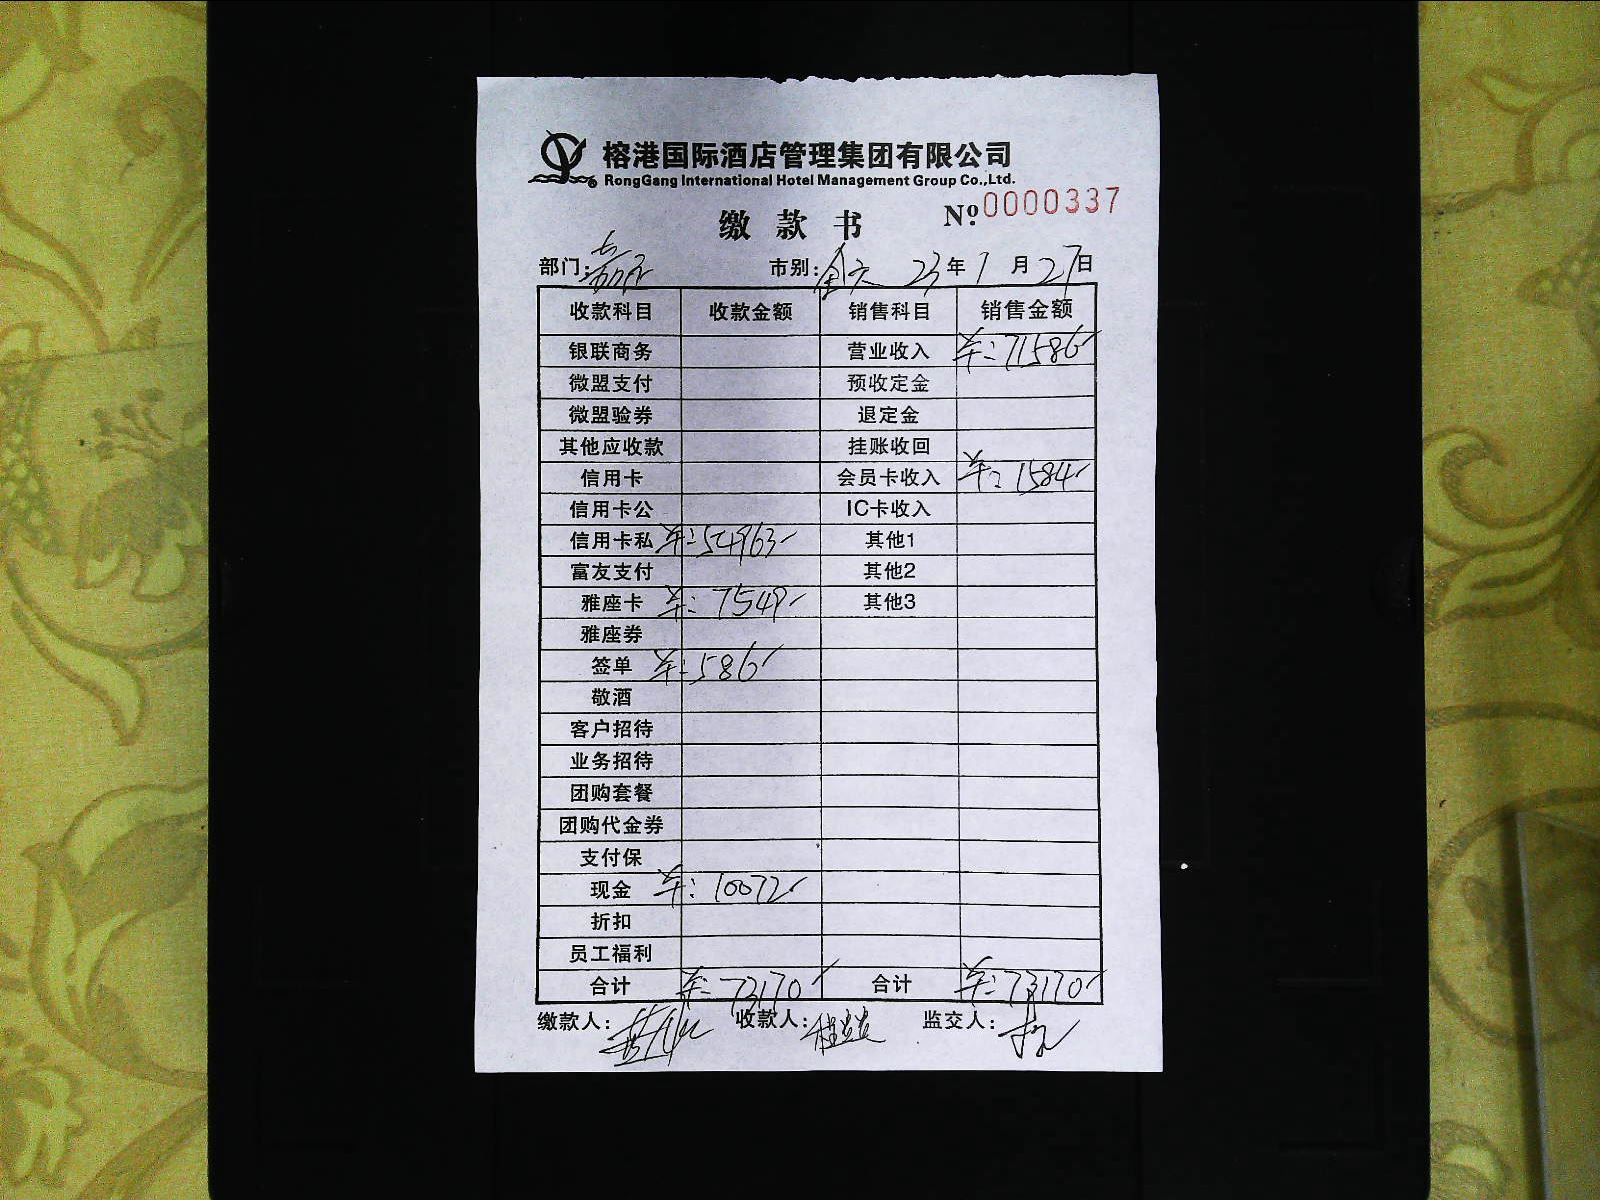 榕港国际酒店管理集团有限公司
RongGang International Hotel Management Group Co.,Ltd.
缴款书 Nº 0000337
部门: 市别:全天 23年1月27日
收款科目 收款金额 销售科目 销售金额
银联商务 营业收入 羊:71586
微盟支付 预收定金
微盟验券 退定金
其他应收款 挂账收回
信用卡 会员卡收入 羊:1584
信用卡公 IC卡收入
信用卡私 羊:54963 其他1
富友支付 其他2
雅座卡 羊:7549 其他3
雅座券
签单 羊:586
敬酒
客户招待
业务招待
团购套餐
团购代金券
支付保
现金 羊:10072
折扣
员工福利
合计 羊:73170 合计 羊:73170
缴款人: 收款人: 监交人: